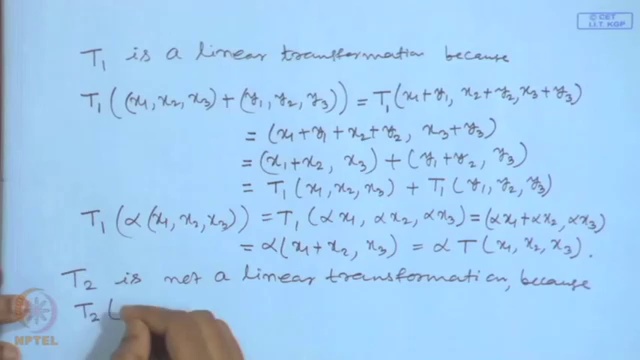 © CET
I.I.T. KGP
T₁ is a linear transformation because
T₁((x₁, x₂, x₃) + (y₁, y₂, y₃)) = T₁(x₁+y₁, x₂+y₂, x₃+y₃)
= (x₁+y₁+x₂+y₂, x₃+y₃)
= (x₁+x₂, x₃) + (y₁+y₂, y₃)
= T₁(x₁, x₂, x₃) + T₁(y₁, y₂, y₃)
T₁(α(x₁, x₂, x₃)) = T₁(αx₁, αx₂, αx₃) = (αx₁+αx₂, αx₃)
= α(x₁+x₂, x₃) = αT(x₁, x₂, x₃).
T₂ is not a linear transformation, because
T₂(
NPTEL